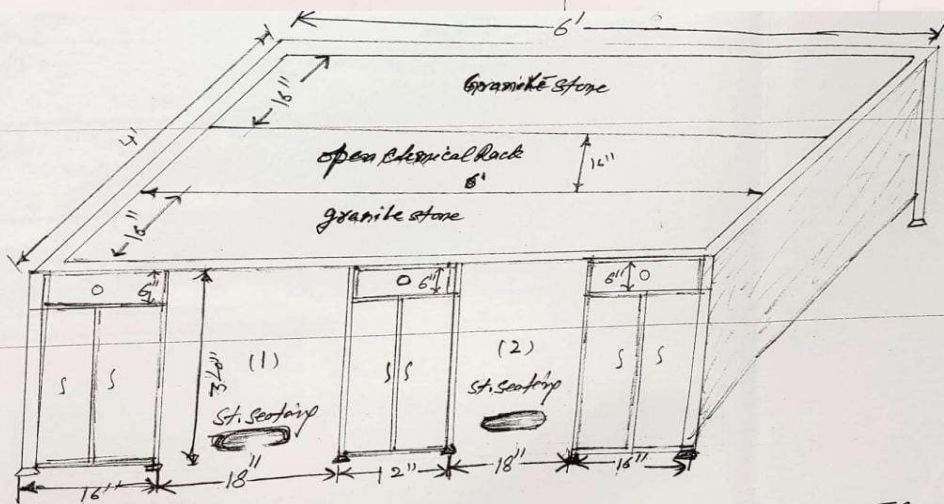 6'
Granite stone
4'
open chemical Rack
16"
6'
granite stone
6" 6" 6"
(1) (2)
St. Seating St. Seating
16" 18" 12" 18" 16"